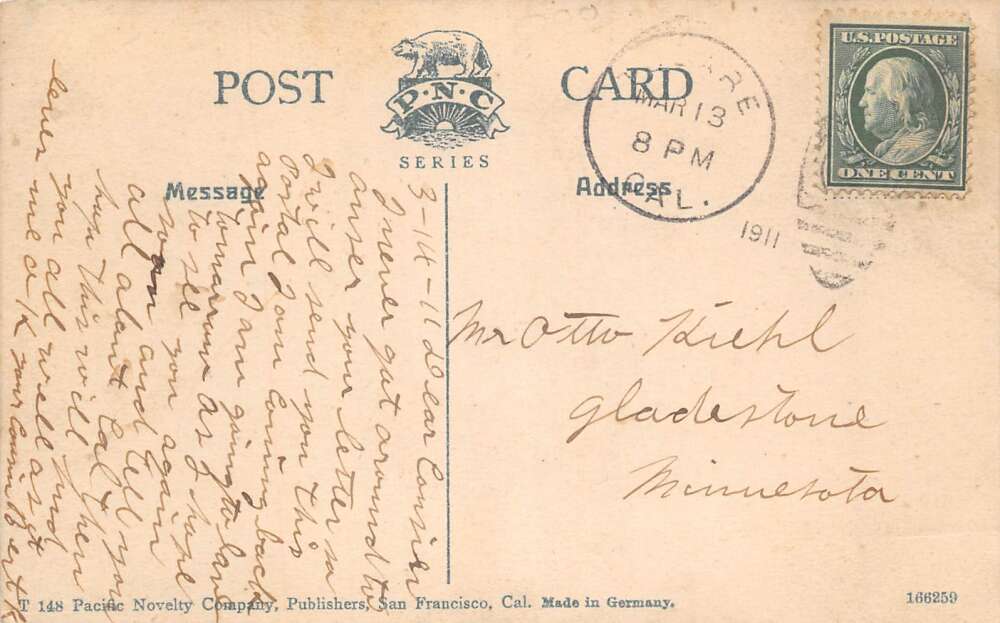 POST CARD
P·N·C
SERIES
Message
Address
TULARE
MAR 13
8 PM
CAL.
1911
U.S. POSTAGE
ONE CENT
3-14-11 Dear Consien
I never got around to
anser your letter so
I will send you this
Postal I am coming back
again I am going to
tomarrow as I hope
to see you again
soon and tell you
all about Cal. then
hope this will find
you all well as it
leves me o/k your Cousin Bert K
Mr Otto Kiehl
Gladestone
Minnesota
T 148 Pacific Novelty Company, Publishers, San Francisco, Cal. Made in Germany.
166259